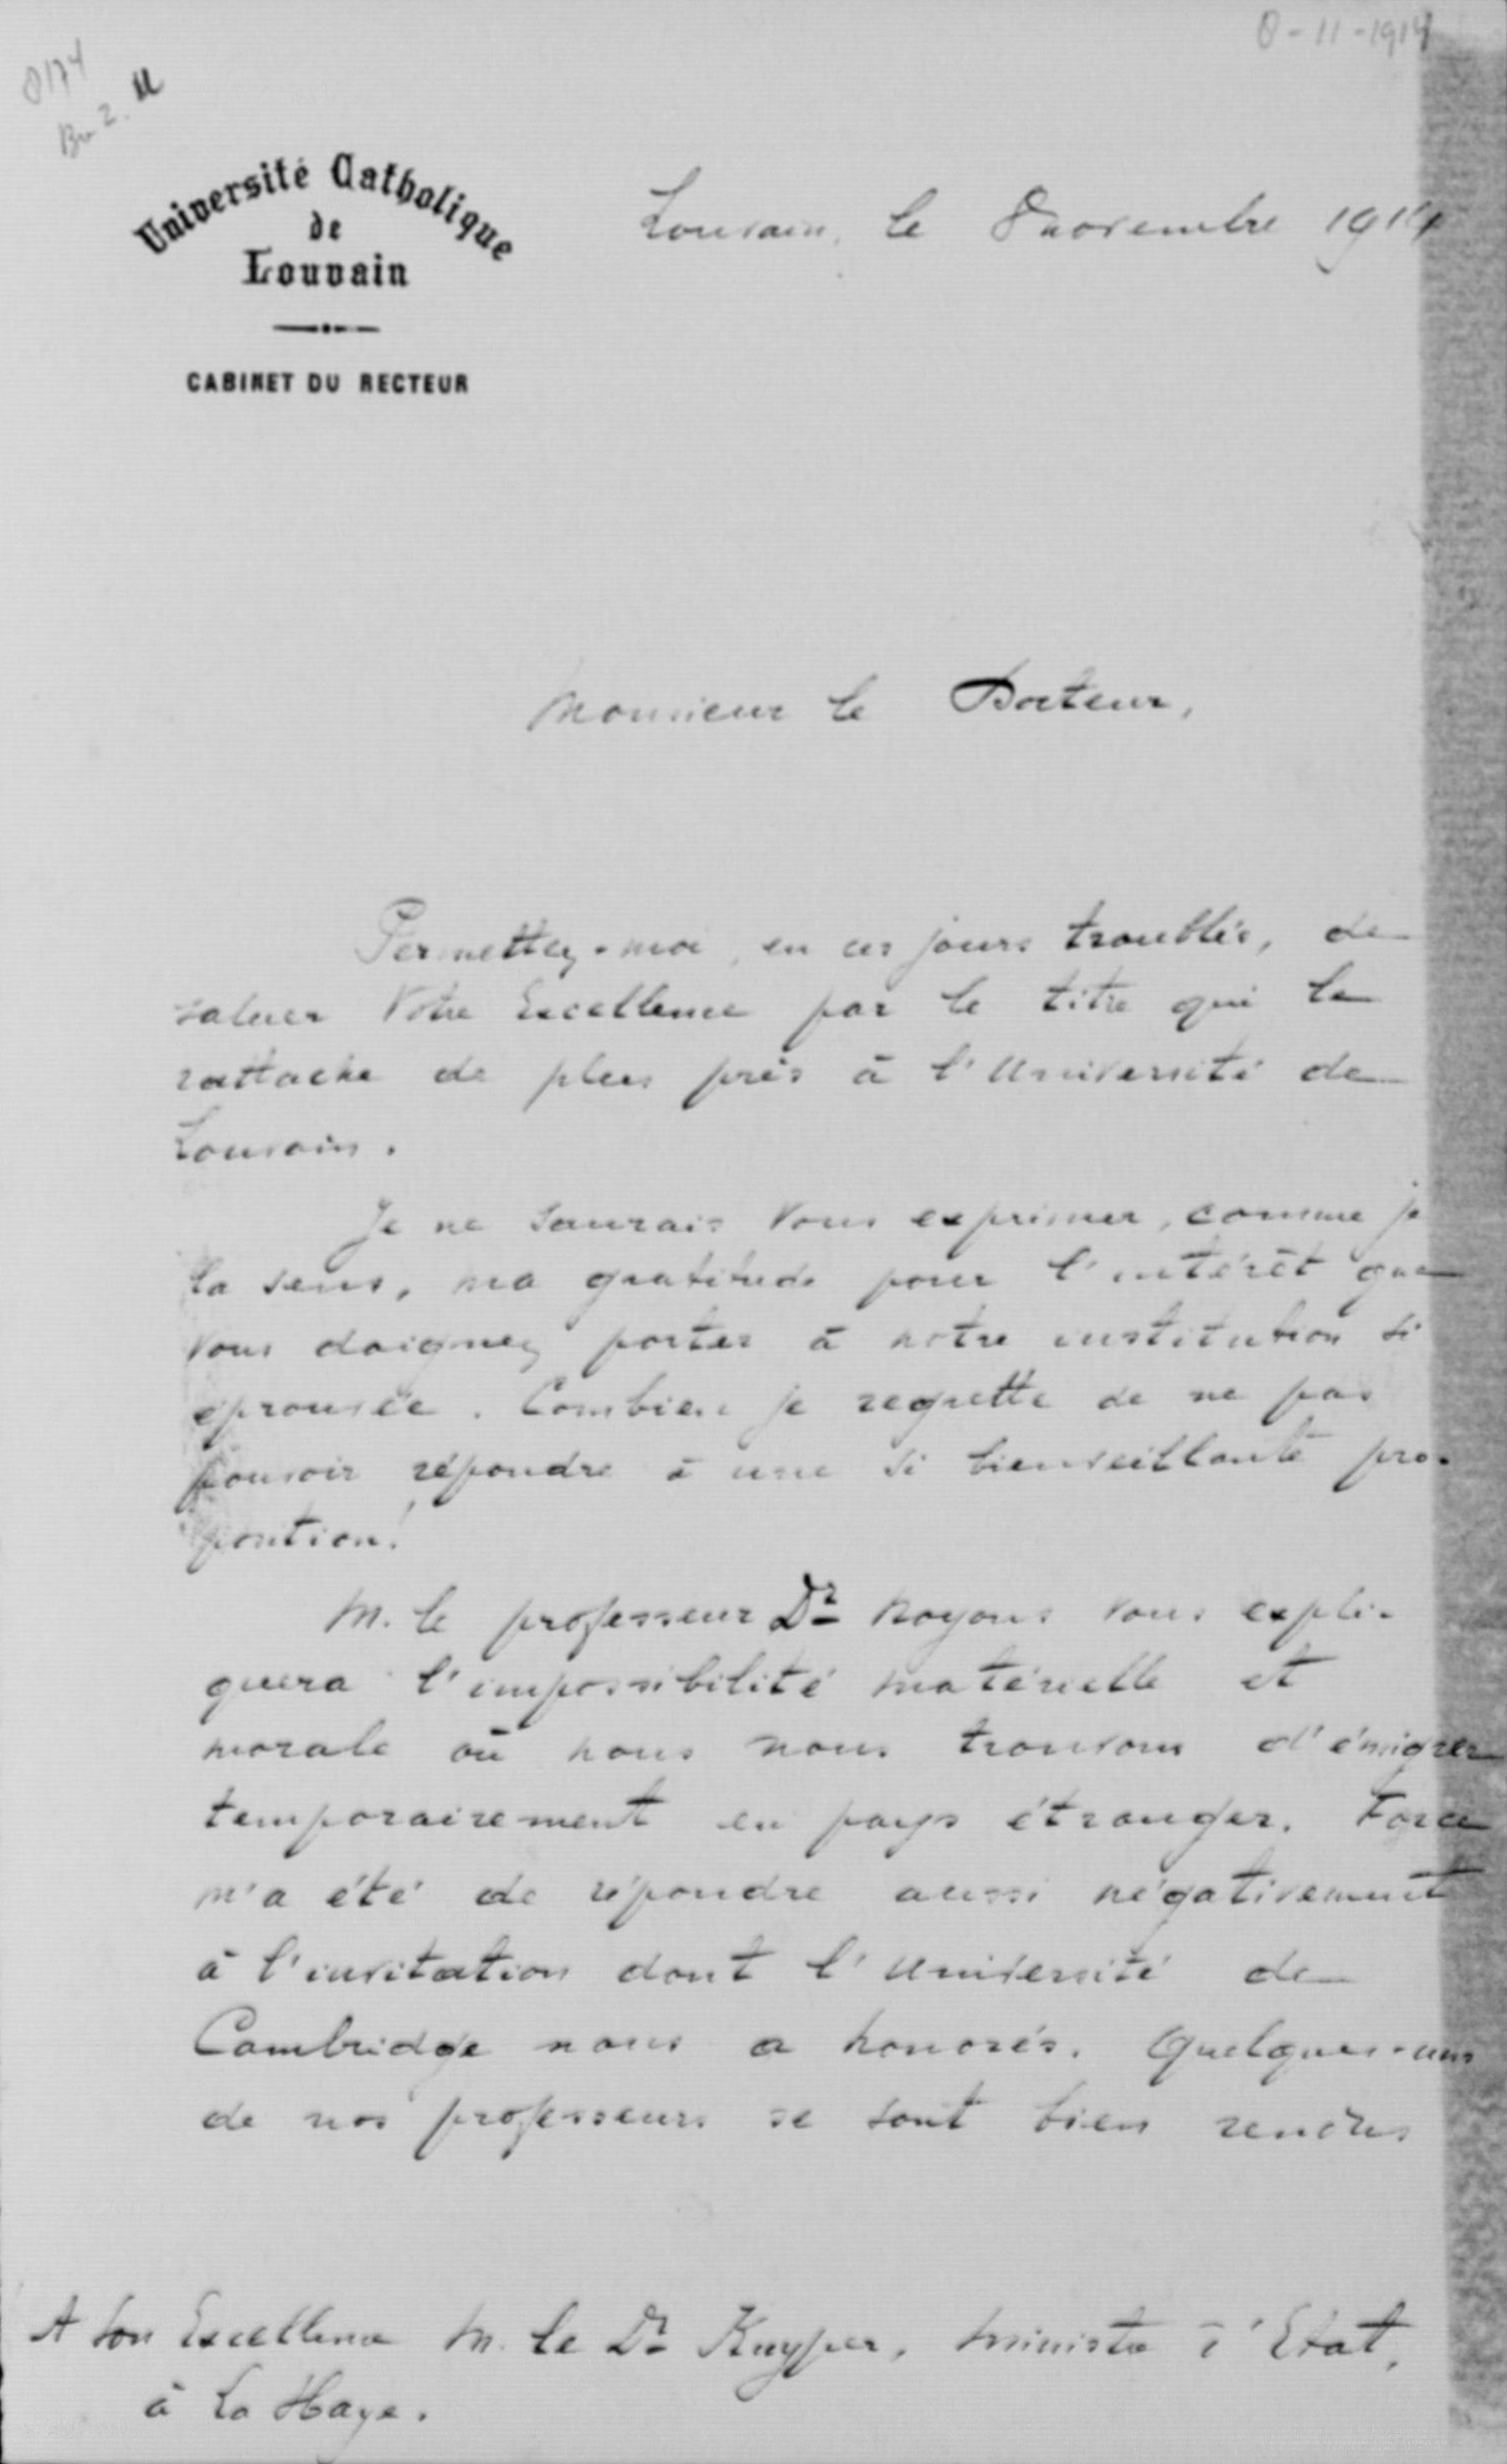 8-11-1914
8174
Br 2.
Université Catholique
de
Louvain
CABINET DU RECTEUR
Louvain, le 8 novembre 1914
Monsieur le Docteur,
Permettez-moi, en ces jours troublés, de
saluer Votre Excellence par le titre qui la
rattache de plus près à l'Université de
Louvain.
Je ne saurais Vous exprimer, comme je
la sens, ma gratitude pour l'intérêt que
Vous daignez porter à notre institution si
éprouvée. Combien je regrette de ne pas
pouvoir répondre à une si bienveillante pro-
position!
M. le professeur Dr Noyons Vous expli-
quera l'impossibilité matérielle et
morale où nous nous trouvons d'émigrer
temporairement en pays étranger. Force
m'a été de répondre aussi négativement
à l'invitation dont l'Université de
Cambridge nous a honorés. Quelques-uns
de nos professeurs se sont bien rendus
A Son Excellence M. le Dr Kuyper, Ministre d'Etat,
à La Haye.